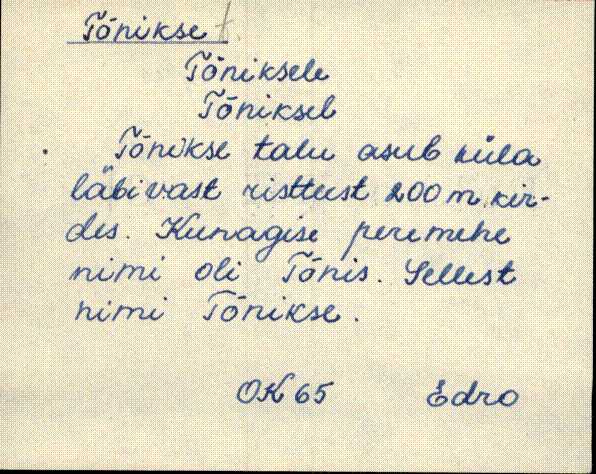 Tõnikse t.
Tõniksele
Tõniksel
Tõnikse talu asub küla
läbivast ristteest 200 m kir-
des. Kunagise peremehe
nimi oli Tõnis. Sellest
nimi Tõnikse.
OK 65 Edro